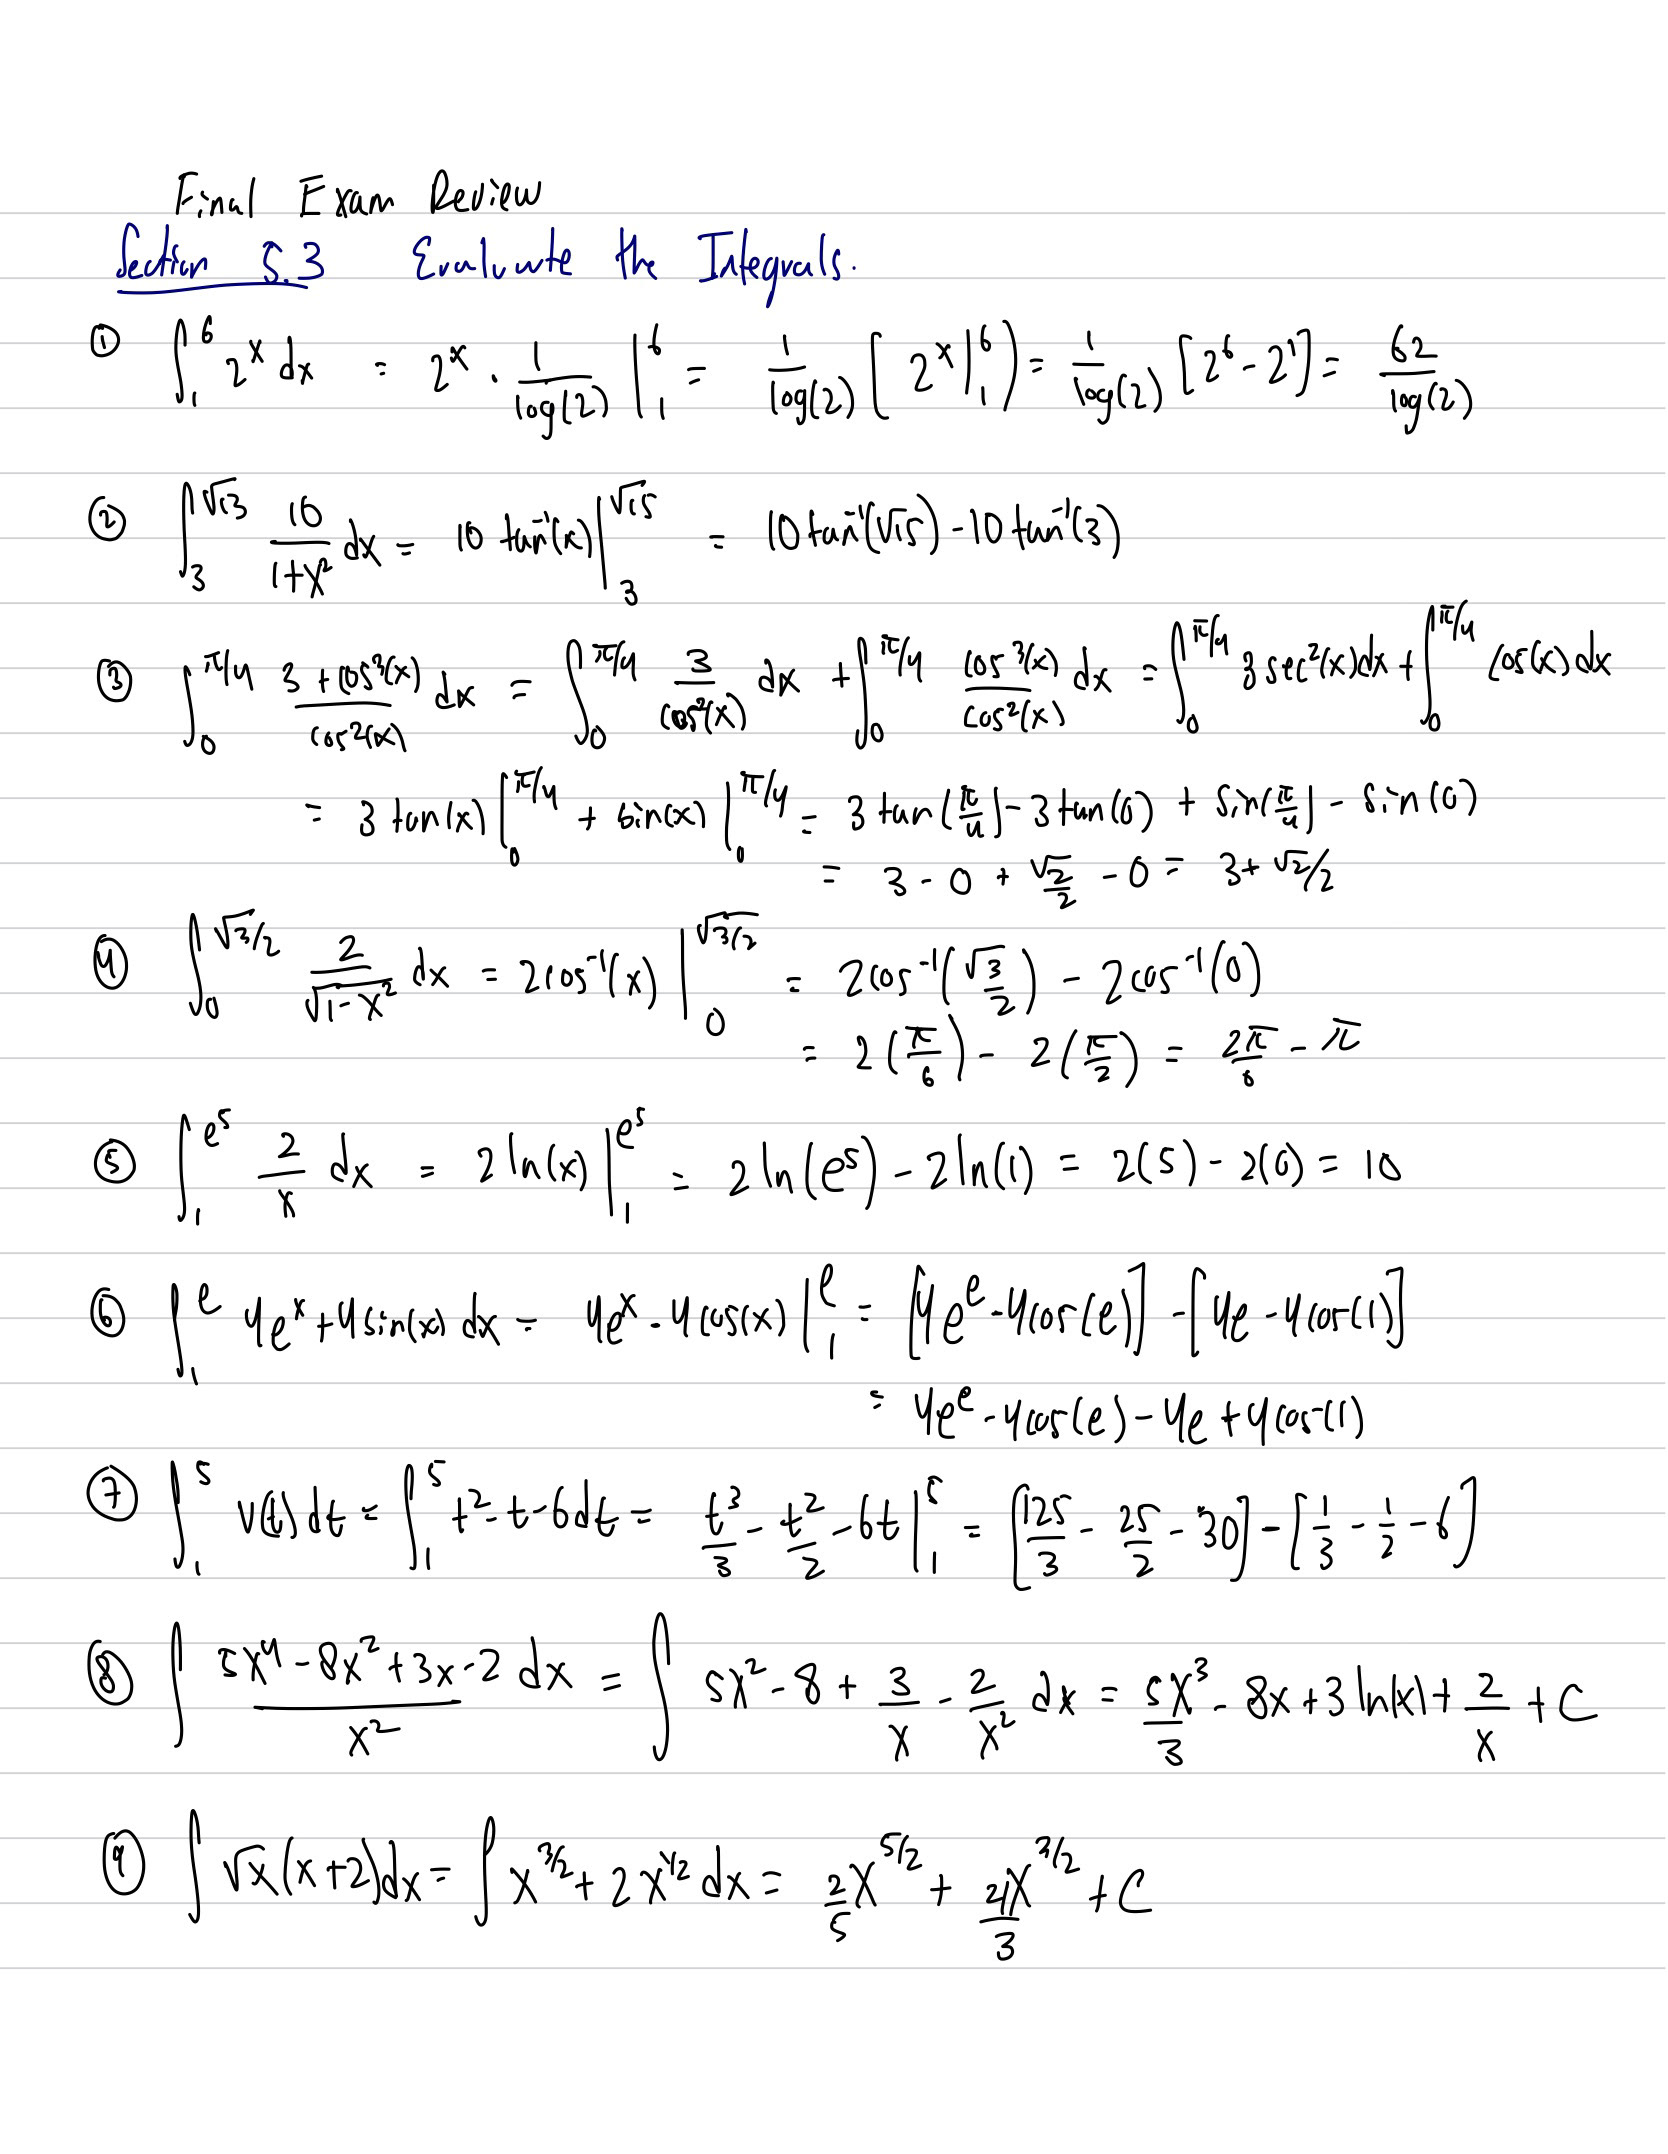 Final Exam Review
Section 5.3 Evaluate the Integrals.
① ∫₁⁶ 2ˣ dx = 2ˣ · 1/log(2) |₁⁶ = 1/log(2) [2ˣ|₁⁶) = 1/log(2) [2⁶ - 2¹] = 62/log(2)
② ∫₃^√13 10/(1+x²) dx = 10 tan⁻¹(x) |₃^√15 = 10 tan⁻¹(√15) - 10 tan⁻¹(3)
③ ∫₀^π/4 (3 + cos³(x))/cos²(x) dx = ∫₀^π/4 3/cos²(x) dx + ∫₀^π/4 cos³(x)/cos²(x) dx = ∫₀^π/4 3 sec²(x) dx + ∫₀^π/4 cos(x) dx
= 3 tan(x) |₀^π/4 + sin(x) |₀^π/4 = 3 tan(π/4) - 3 tan(0) + sin(π/4) - sin(0)
= 3 - 0 + √2/2 - 0 = 3 + √2/2
④ ∫₀^√3/2 2/√(1-x²) dx = 2cos⁻¹(x) |₀^√3/2 = 2cos⁻¹(√3/2) - 2cos⁻¹(0)
= 2(π/6) - 2(π/2) = 2π/6 - π
⑤ ∫₁^e⁵ 2/x dx = 2 ln(x) |₁^e⁵ = 2 ln(e⁵) - 2 ln(1) = 2(5) - 2(0) = 10
⑥ ∫₁^e 4eˣ + 4 sin(x) dx = 4eˣ - 4 cos(x) |₁^e = [4e^e - 4cos(e)] - [4e - 4cos(1)]
= 4e^e - 4cos(e) - 4e + 4cos(1)
⑦ ∫₁⁵ v(t) dt = ∫₁⁵ t² - t - 6 dt = t³/3 - t²/2 - 6t |₁⁵ = [125/3 - 25/2 - 30] - [1/3 - 1/2 - 6]
⑧ ∫ (5x⁴ - 8x² + 3x - 2)/x² dx = ∫ 5x² - 8 + 3/x - 2/x² dx = 5x³/3 - 8x + 3 ln|x| + 2/x + C
⑨ ∫ √x (x+2) dx = ∫ x^3/2 + 2x^1/2 dx = 2/5 x^5/2 + 4x^3/2/3 + C